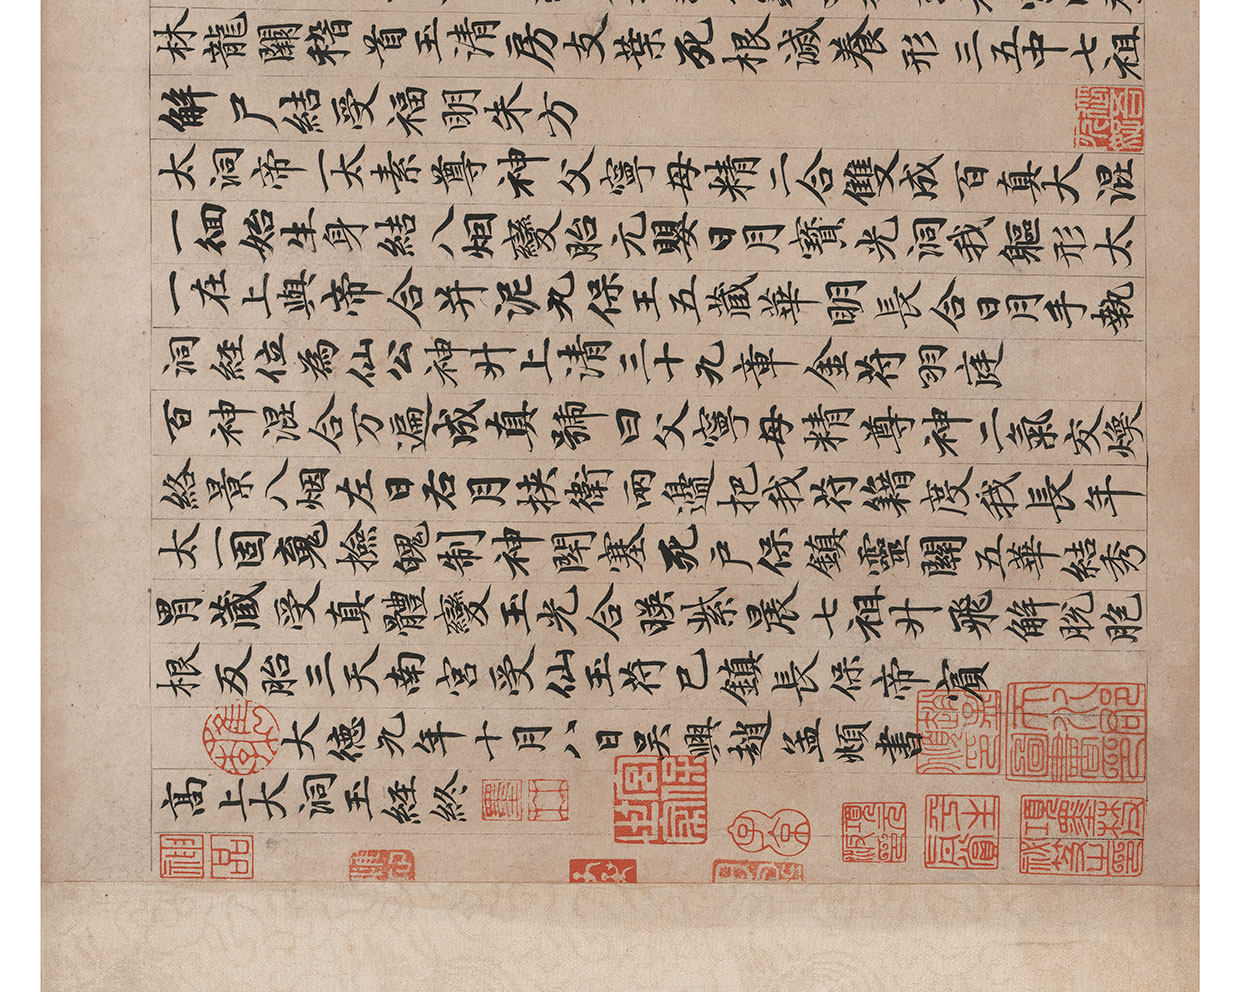 林龍關稽首玉清房支葉死根滅養形三五中七祖
解尸結受福明朱方
太洞帝一太素尊神父寧母精二合雙成百真大混
一徊始生身結八烟變胎元嬰日月寶光洞我軀形太
一在上與帝合并泥丸保王五藏華明長合日月手執
洞經位為仙公神升上清三十九章金符羽庭
百神混合万遍成真號曰父寧母精尊神二氣交煥
絡景八烟左日右月挾衛兩邊把我符籍度我長年
太一固魂撿魄制神閇塞死戶保鎮靈關五華結秀
胃藏受真體變玉光合暎紫晨七祖升飛解脫胞
根反胎三天南宮受仙玉符已鎮長保帝賓
大德九年十月八日吳興趙孟頫書
高上大洞玉經終